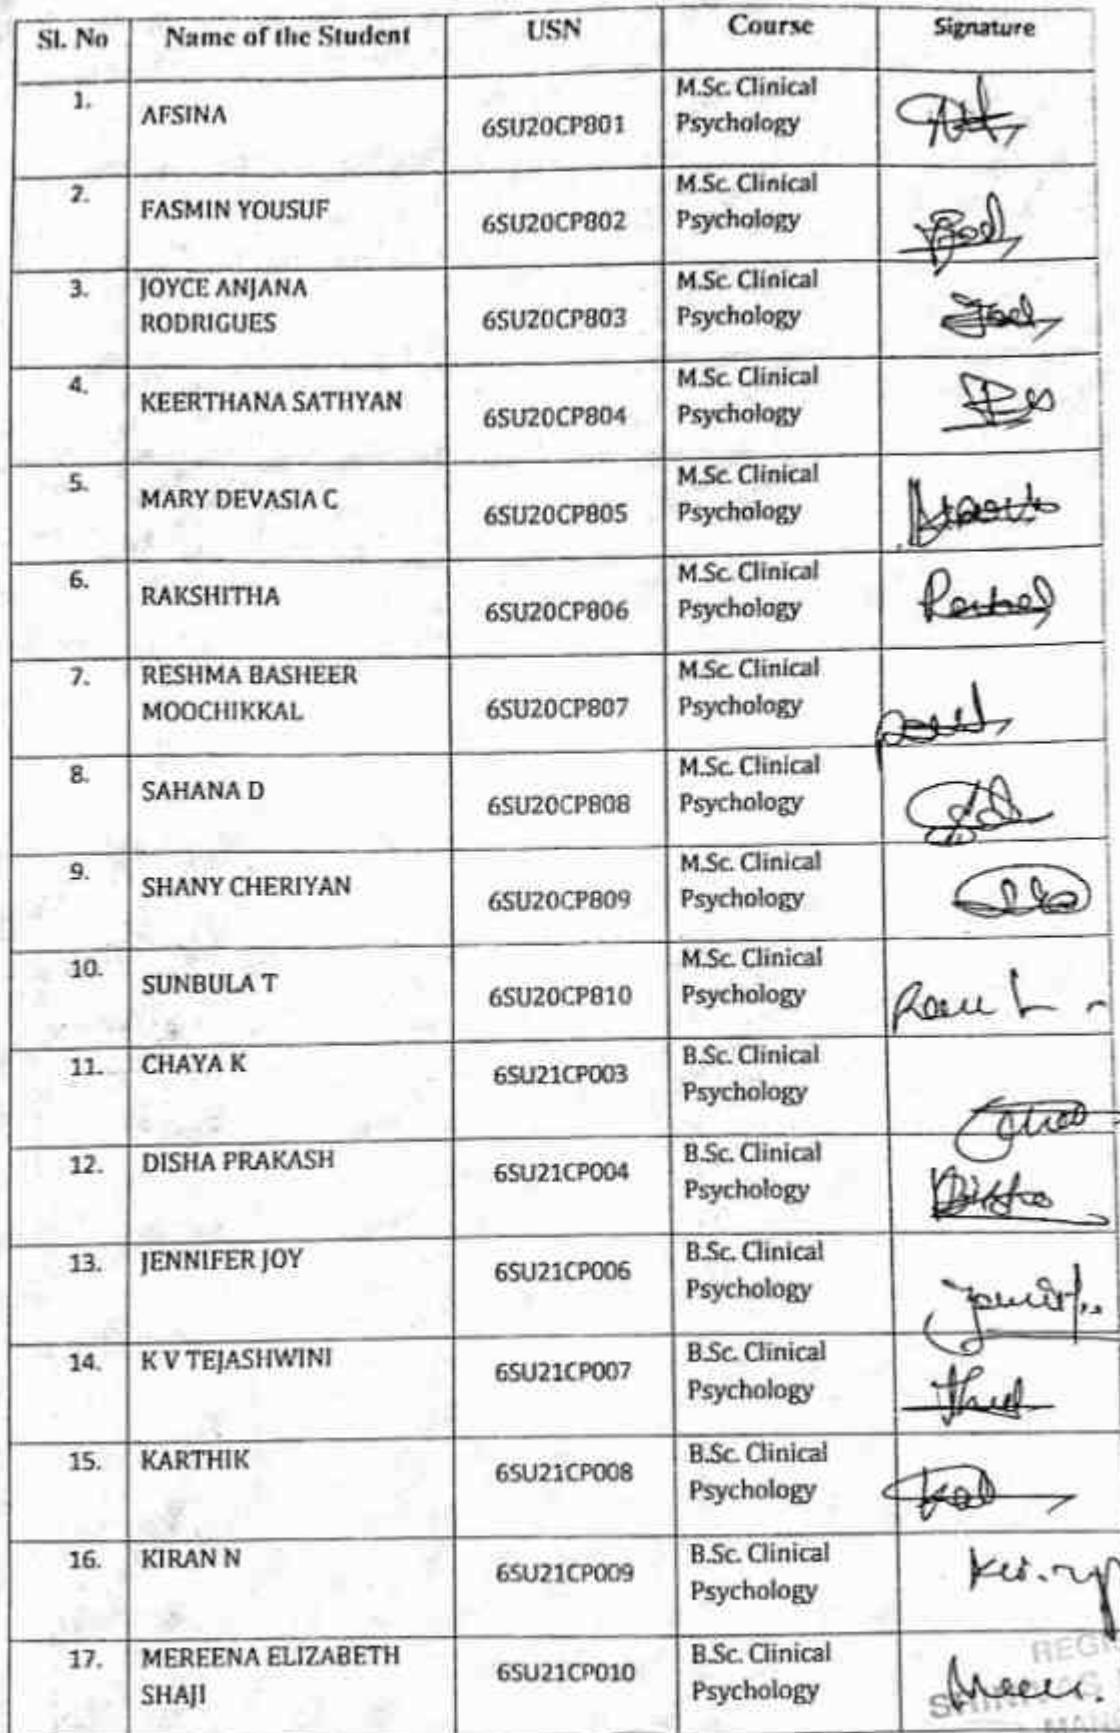 Sl. No Name of the Student USN Course Signature
1. AFSINA 6SU20CP801 M.Sc. Clinical
Psychology
2. FASMIN YOUSUF 6SU20CP802 M.Sc. Clinical
Psychology
3. JOYCE ANJANA
RODRIGUES 6SU20CP803 M.Sc. Clinical
Psychology
4. KEERTHANA SATHYAN 6SU20CP804 M.Sc. Clinical
Psychology
5. MARY DEVASIA C 6SU20CP805 M.Sc. Clinical
Psychology
6. RAKSHITHA 6SU20CP806 M.Sc. Clinical
Psychology
7. RESHMA BASHEER
MOOCHIKKAL 6SU20CP807 M.Sc. Clinical
Psychology
8. SAHANA D 6SU20CP808 M.Sc. Clinical
Psychology
9. SHANY CHERIYAN 6SU20CP809 M.Sc. Clinical
Psychology
10. SUNBULA T 6SU20CP810 M.Sc. Clinical
Psychology
11. CHAYA K 6SU21CP003 B.Sc. Clinical
Psychology
12. DISHA PRAKASH 6SU21CP004 B.Sc. Clinical
Psychology
13. JENNIFER JOY 6SU21CP006 B.Sc. Clinical
Psychology
14. K V TEJASHWINI 6SU21CP007 B.Sc. Clinical
Psychology
15. KARTHIK 6SU21CP008 B.Sc. Clinical
Psychology
16. KIRAN N 6SU21CP009 B.Sc. Clinical
Psychology
17. MEREENA ELIZABETH
SHAJI 6SU21CP010 B.Sc. Clinical
Psychology